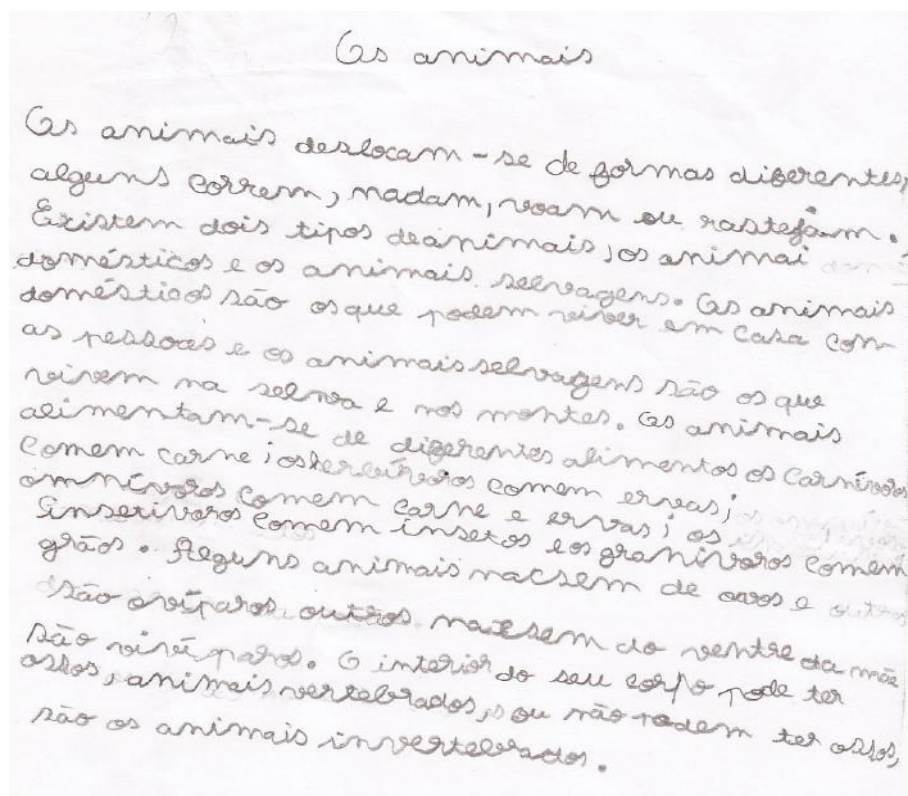 Os animais
Os animais deslocam-se de formas diferentes,
alguns correm, nadam, voam ou rastejam.
Existem dois tipos deanimais, os animai
domésticos e os animais selvagens. Os animais
domésticos são osque podem viver em casa com
as pessoas e os animaisselvagens são os que
vivem na selva e nos montes. Os animais
alimentam-se de diferentes alimentos os carnívoros
comem carne; osherbívoros comem ervas;
omnívoros comem carne e ervas; os
insetívoros comem insetos e os granívoros comem
grãos. Alguns animais nacsem de ovos e outros
são ovíparos outros nacsem do ventre da mãe
são vivíparos. O interior do seu corpo pode ter
ossos, animais vertebrados, ou não podem ter ossos,
são os animais invertebrados.